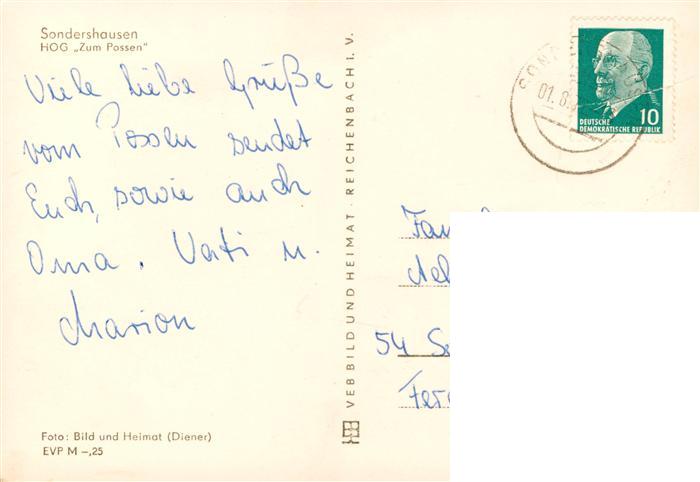 Sondershausen
HOG „Zum Possen"
Viele liebe Grüße
vom Possen sendet
Euch, sowie auch
Oma. Vati u.
Marion
Foto: Bild und Heimat (Diener)
EVP M –,25
VEB BILD UND HEIMAT · REICHENBACH I. V.
01.8.
10
DEUTSCHE
DEMOKRATISCHE REPUBLIK
54